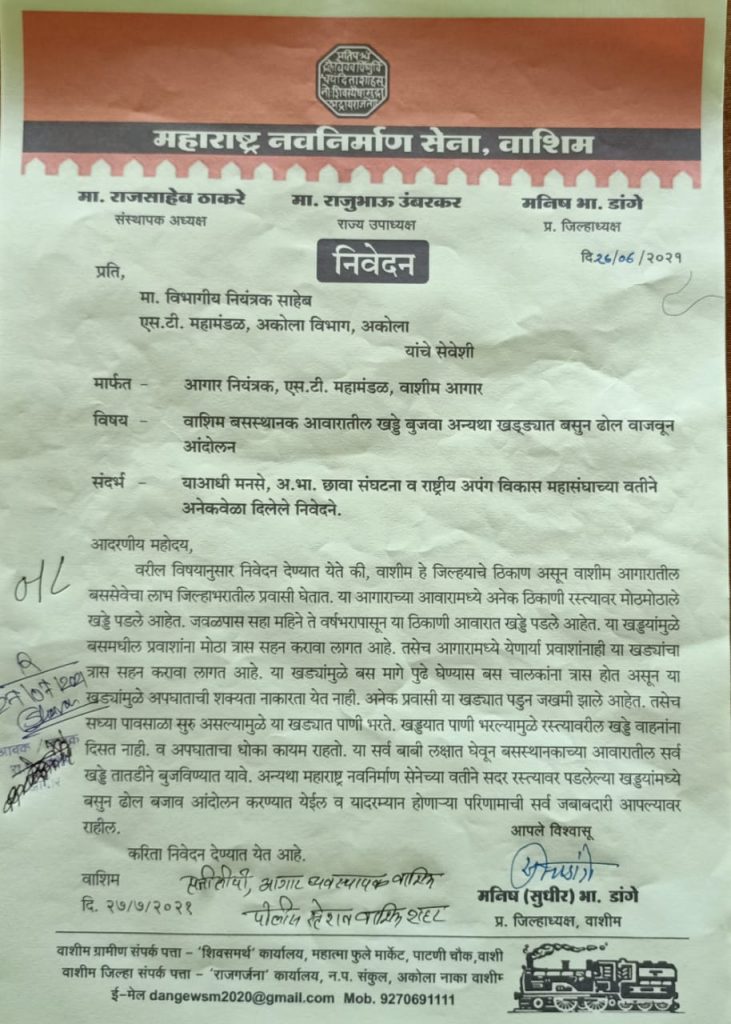 महाराष्ट्र नवनिर्माण सेना, वाशिम
मा. राजसाहेब ठाकरे मा. राजुभाऊ उंबरकर मनिष भा. डांगे
संस्थापक अध्यक्ष राज्य उपाध्यक्ष प्र. जिल्हाध्यक्ष
निवेदन
दि. /२०२१
प्रति,
मा. विभागीय नियंत्रक साहेब
एस.टी. महामंडळ, अकोला विभाग, अकोला
यांचे सेवेशी
मार्फत - आगार नियंत्रक, एस.टी. महामंडळ, वाशीम आगार
विषय - वाशिम बसस्थानक आवारातील खड्डे बुजवा अन्यथा खड्ड्यात बसुन ढोल वाजवून
आंदोलन
संदर्भ - याआधी मनसे, अ.भा. छावा संघटना व राष्ट्रीय अपंग विकास महासंघाच्या वतीने
अनेकवेळा दिलेले निवेदने.
आदरणीय महोदय,
वरील विषयानुसार निवेदन देण्यात येते की, वाशीम हे जिल्हयाचे ठिकाण असून वाशीम आगारातील
बससेवेचा लाभ जिल्हाभरातील प्रवासी घेतात. या आगाराच्या आवारामध्ये अनेक ठिकाणी रस्त्यावर मोठमोठाले
खड्डे पडले आहेत. जवळपास सहा महिने ते वर्षभरापासून या ठिकाणी आवारात खड्डे पडले आहेत. या खड्डयांमुळे
बसमधील प्रवाशांना मोठा त्रास सहन करावा लागत आहे. तसेच आगारामध्ये येणार्या प्रवाशांनाही या खड्यांचा
त्रास सहन करावा लागत आहे. या खड्यांमुळे बस मागे पुढे घेण्यास बस चालकांना त्रास होत असून या
खड्यांमुळे अपघाताची शक्यता नाकारता येत नाही. अनेक प्रवासी या खड्यात पडुन जखमी झाले आहेत. तसेच
सध्या पावसाळा सुरु असल्यामुळे या खड्यात पाणी भरते. खड्डयात पाणी भरल्यामुळे रस्त्यावरील खड्डे वाहनांना
दिसत नाही. व अपघाताचा धोका कायम राहतो. या सर्व बाबी लक्षात घेवून बसस्थानकाच्या आवारातील सर्व
खड्डे तातडीने बुजविण्यात यावे. अन्यथा महाराष्ट्र नवनिर्माण सेनेच्या वतीने सदर रस्त्यावर पडलेल्या खड्डयांमध्ये
बसुन ढोल बजाव आंदोलन करण्यात येईल व यादरम्यान होणाऱ्या परिणामाची सर्व जबाबदारी आपल्यावर
राहील.
आपले विश्वासू
करिता निवेदन देण्यात येत आहे.
वाशिम आगार व्यवस्थापक वाशिम
दि. २७/७/२०२१ पोलीस स्टेशन वाशिम शहर
मनिष (सुधीर) भा. डांगे
प्र. जिल्हाध्यक्ष, वाशीम
वाशीम ग्रामीण संपर्क पत्ता - 'शिवसमर्थ' कार्यालय, महात्मा फुले मार्केट, पाटणी चौक,वाशी
वाशीम जिल्हा संपर्क पत्ता - 'राजगर्जना' कार्यालय, न.प. संकुल, अकोला नाका वाशीम
ई-मेल dangewsm2020@gmail.com Mob. 9270691111